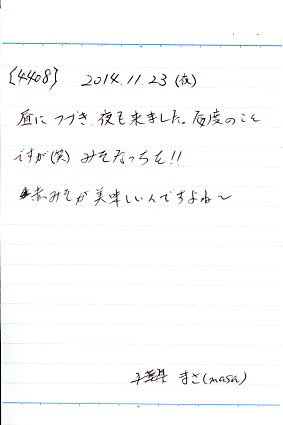 {4408} 2014.11.23(夜)
昼につづき、夜も来ました。毎度のこと
ですが(笑) みそなっちを!!
赤みそが美味しいんですよね〜
千葉県 まさ(masa)